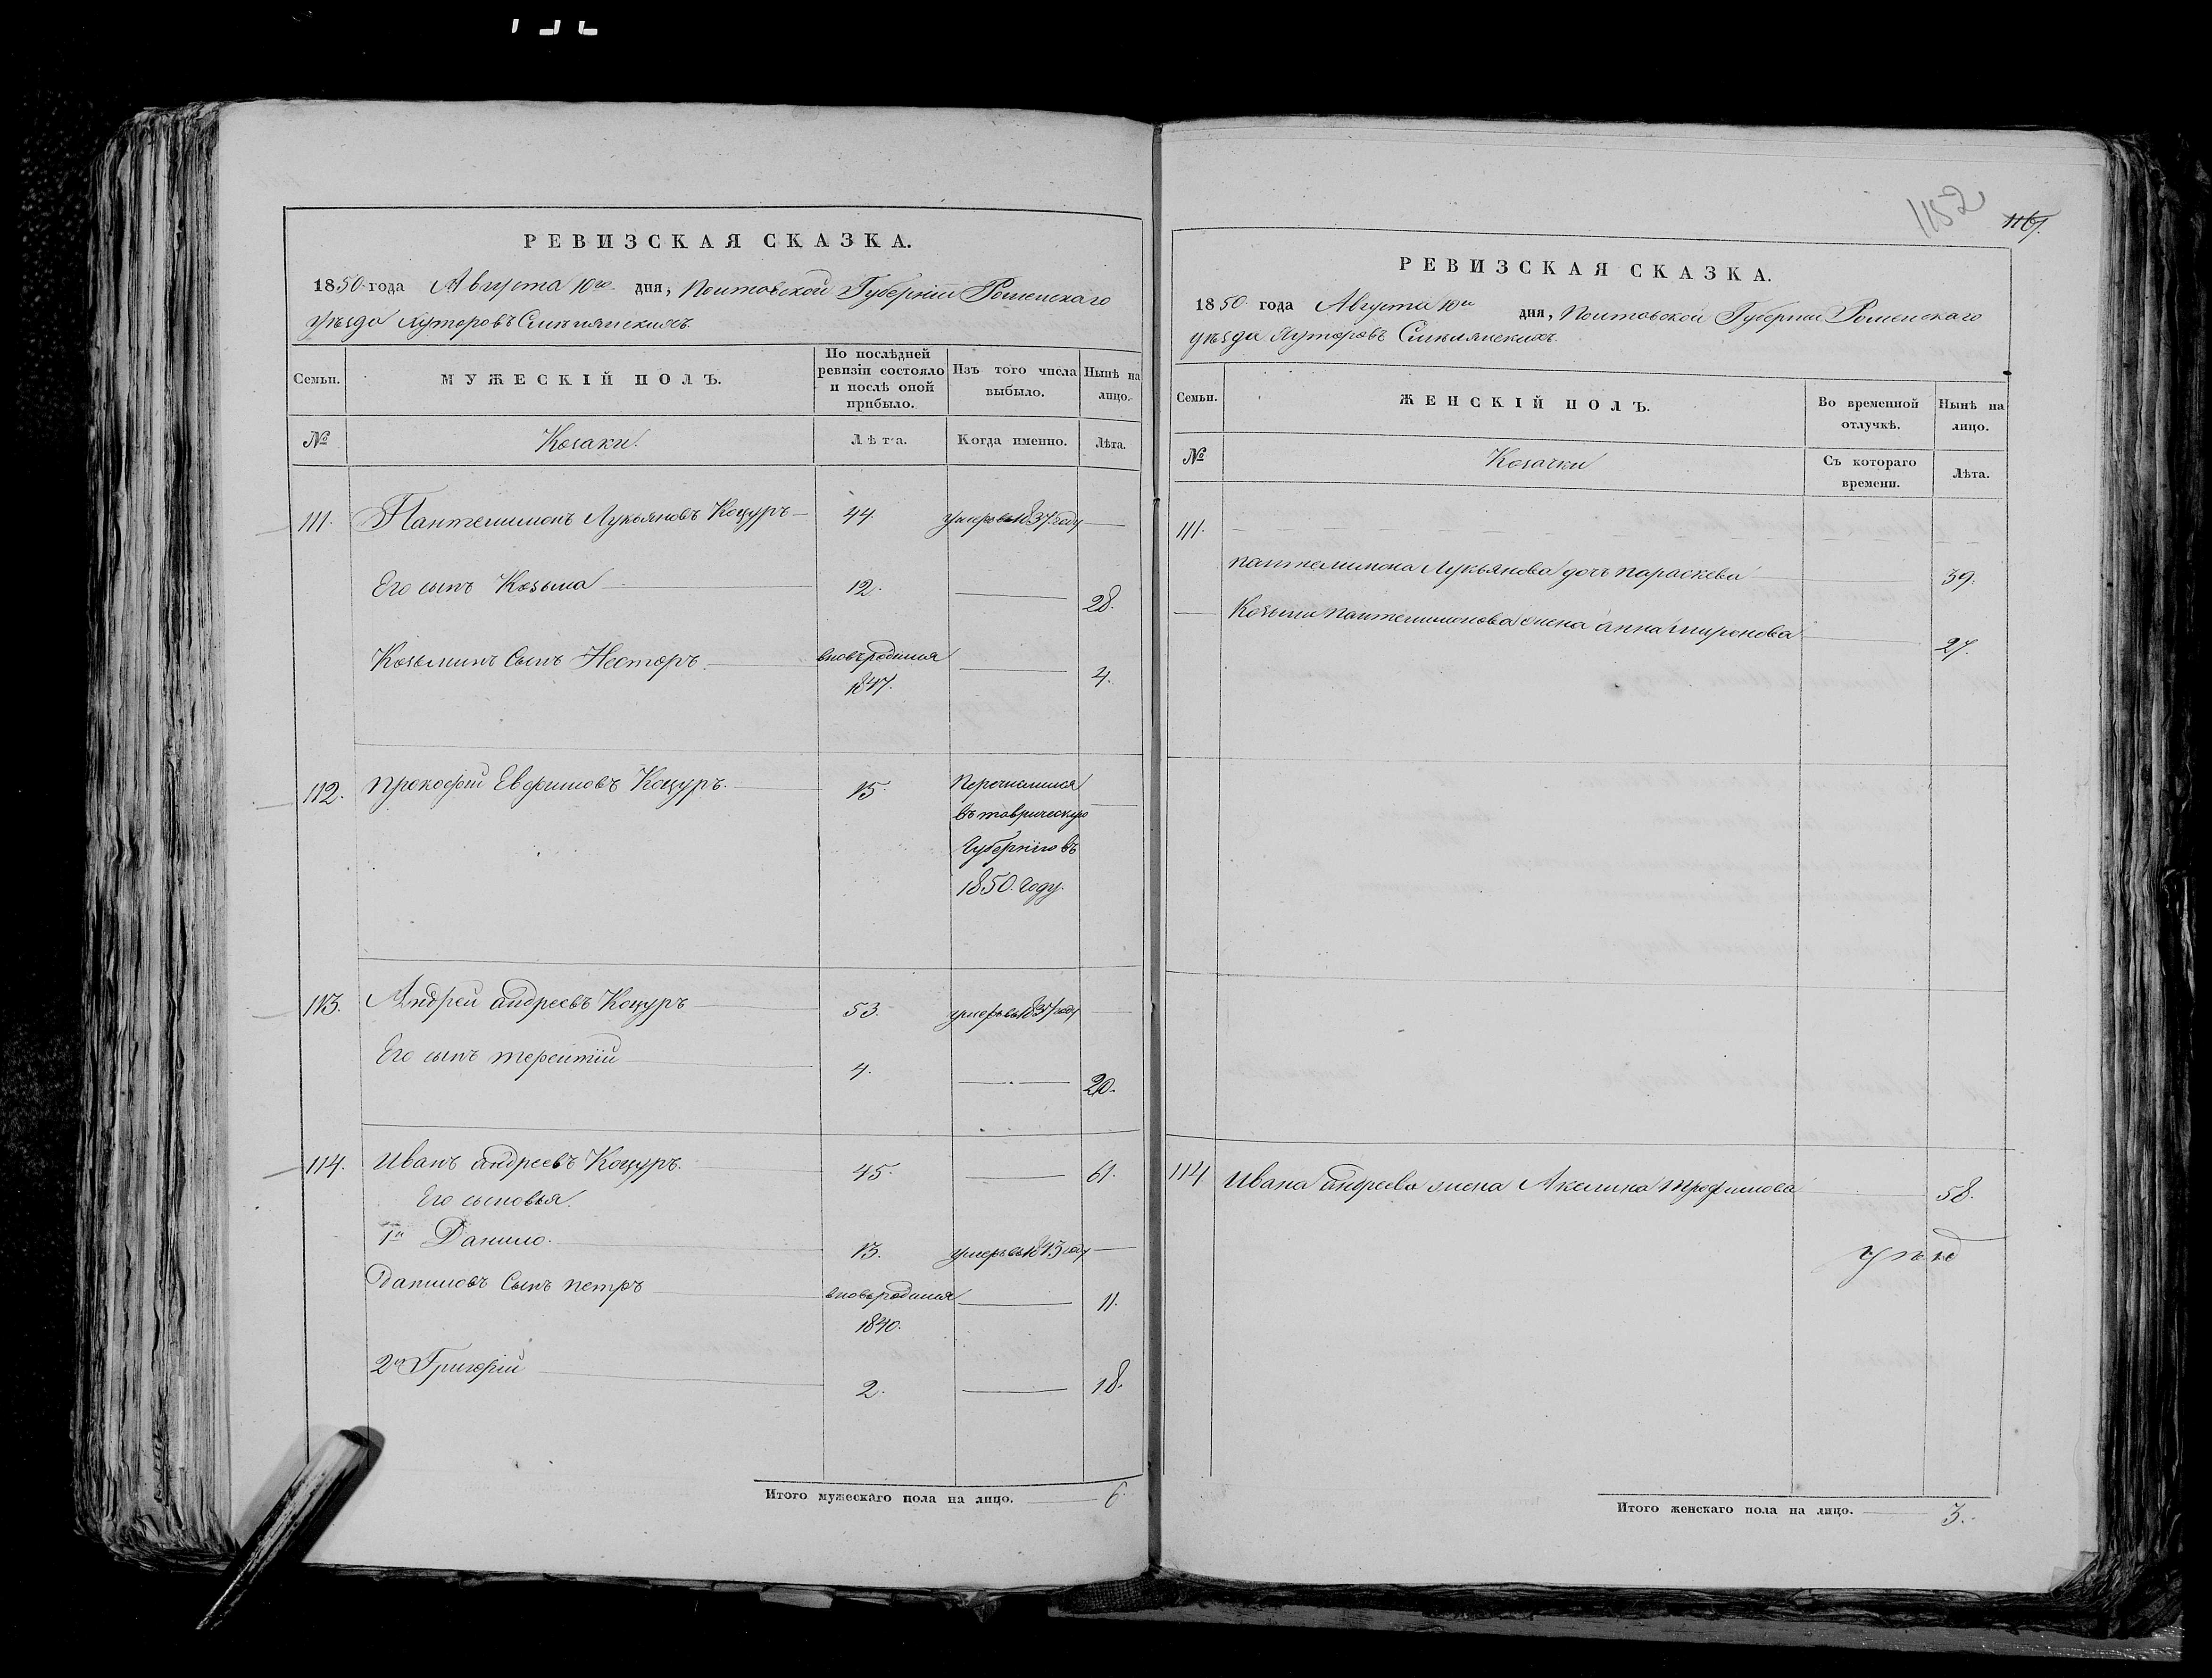 РЕВИЗСКАЯ СКАЗКА.
1850 года Августа 10го дня, Полтовской Губерніи Роменскаго
уѣзда Хуторовъ Смѣлянскихъ
Семьи. МУЖЕСКІЙ ПОЛЪ. По послѣдней ревизіи состояло и послѣ оной прибыло. Изъ того числа выбыло. Нынѣ на лицо.
№ Козаки. Лѣта. Когда именно. Лѣта.
111. Пантелимонъ Лукьяновъ Коцуръ 44. умеръ въ 1837 году
Его сынъ Козьма 12. 28.
Козьминъ Сынъ Несторъ. вновьродился 4.
1847.
112. Прокофій Евфимовъ Коцуръ. 15. Перечислился
въ таврическую
Губернію въ
1850. году.
113. Андрей андреевъ Коцуръ 53. умеръ въ 1837 году
Его сынъ терентій 4. 20.
114. Иванъ андреевъ Коцуръ. 45. 61.
Его сыновья.
1й Данило. 13. умеръ въ 1843 году
Даниловъ Сынъ петръ вновьродился 11.
1840.
2й Григорій 2. 18.
Итого мужескаго пола на лицо. 6.
1152
1167.
РЕВИЗСКАЯ СКАЗКА.
1850 года Августа 10го дня, Полтовской Губерніи Роменскаго
уѣзда Хуторовъ Смѣлянскихъ.
Семьи. ЖЕНСКІЙ ПОЛЪ. Во временной отлучкѣ. Нынѣ на лицо.
№ Козачки Съ котораго времени. Лѣта.
111.
пантелимона Лукьянова дочь параскева 39.
Козьмы пантелимонова жена анна миронова 27.
114. Ивана андреева жена Акилина трофимова 58.
Итого женскаго пола на лицо. 3.